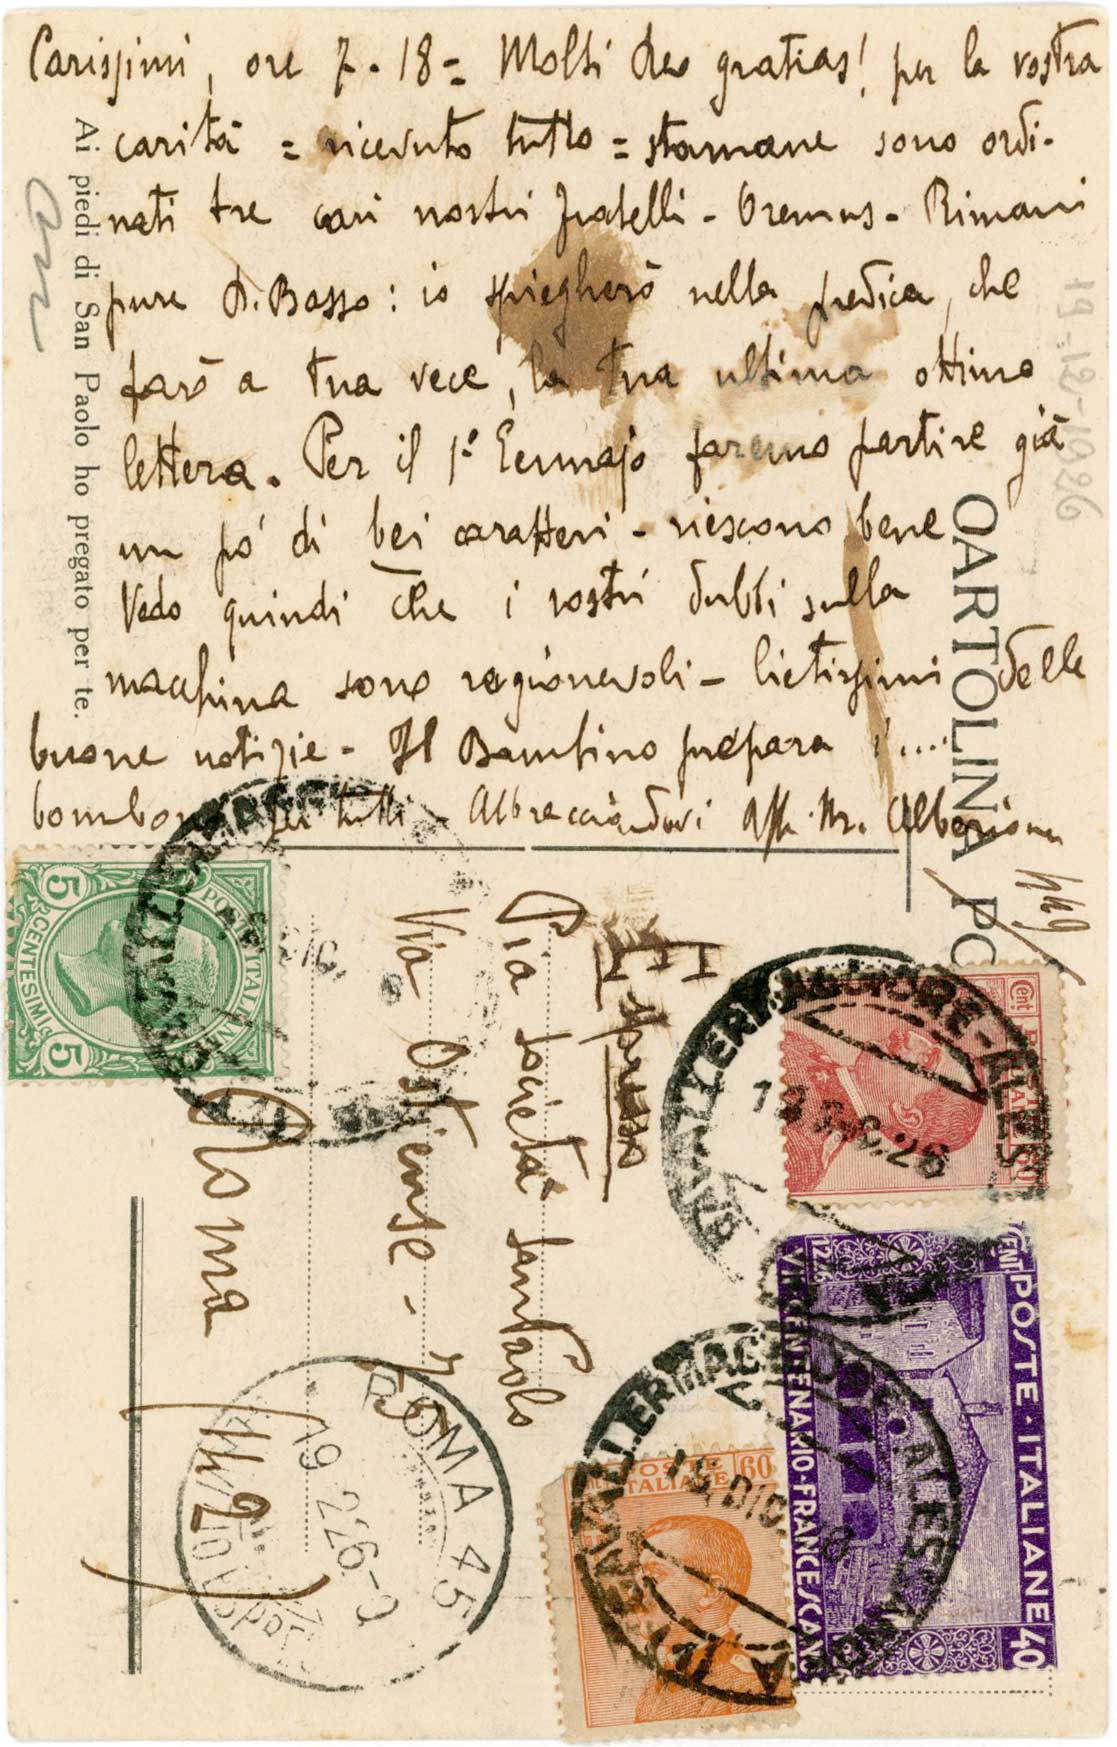 Carissimi, ore 7-18 = Molti Deo gratias! per la vostra
carità = ricevuto tutto = stamane sono ordi-
nati tre cari nostri fratelli - Oremus - Rimani
pure D. Basso: io spiegherò nella predica, che
farò a tua vece, la tua ultima ottima
lettera. Per il 1° Gennajo faremo partire già
un pò di bei caratteri - riescono bene
Vedo quindi che i vostri dubbi sulla
macchina sono ragionevoli - lietissimi delle
buone notizie - Il Bambino prepara i....
bomboni per tutti - Abbracciandovi aff. M. Alberione
Ai piedi di San Paolo ho pregato per te.
19-12-1926
CARTOLINA PO
Espresso
Pia Società San Paolo
Via Ostiense -
Roma
5 CENTESIMI 5
POSTE ITALIANE
Cent
60
POSTE ITALIANE 40
CENT
VII CENTENARIO FRANCESCANO
1226
POSTE
ITALIANE
60
CAVALLERMAGGIORE - ALESS
CAVALLERMAGGIORE - ALESS
DIC
ROMA 45